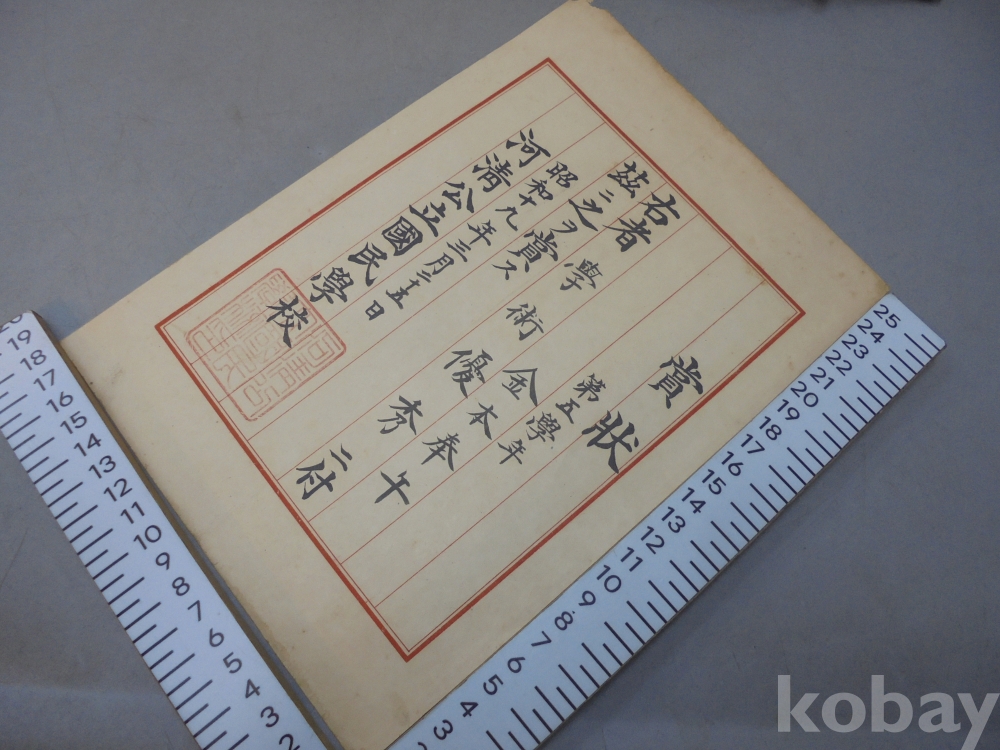 賞狀
第五學年
金本奉午
右者學術優秀ニ付
茲ニ之ヲ賞ス
昭和十九年三月二十五日
河清公立國民學校
19 18 17 16 15 14 13 12 11 10 9 8 7 6 5 4 3 2
25 24 23 22 21 20 19 18 17 16 15 14 13 12 11 10 9 8 7 6 5 4 3
kobay